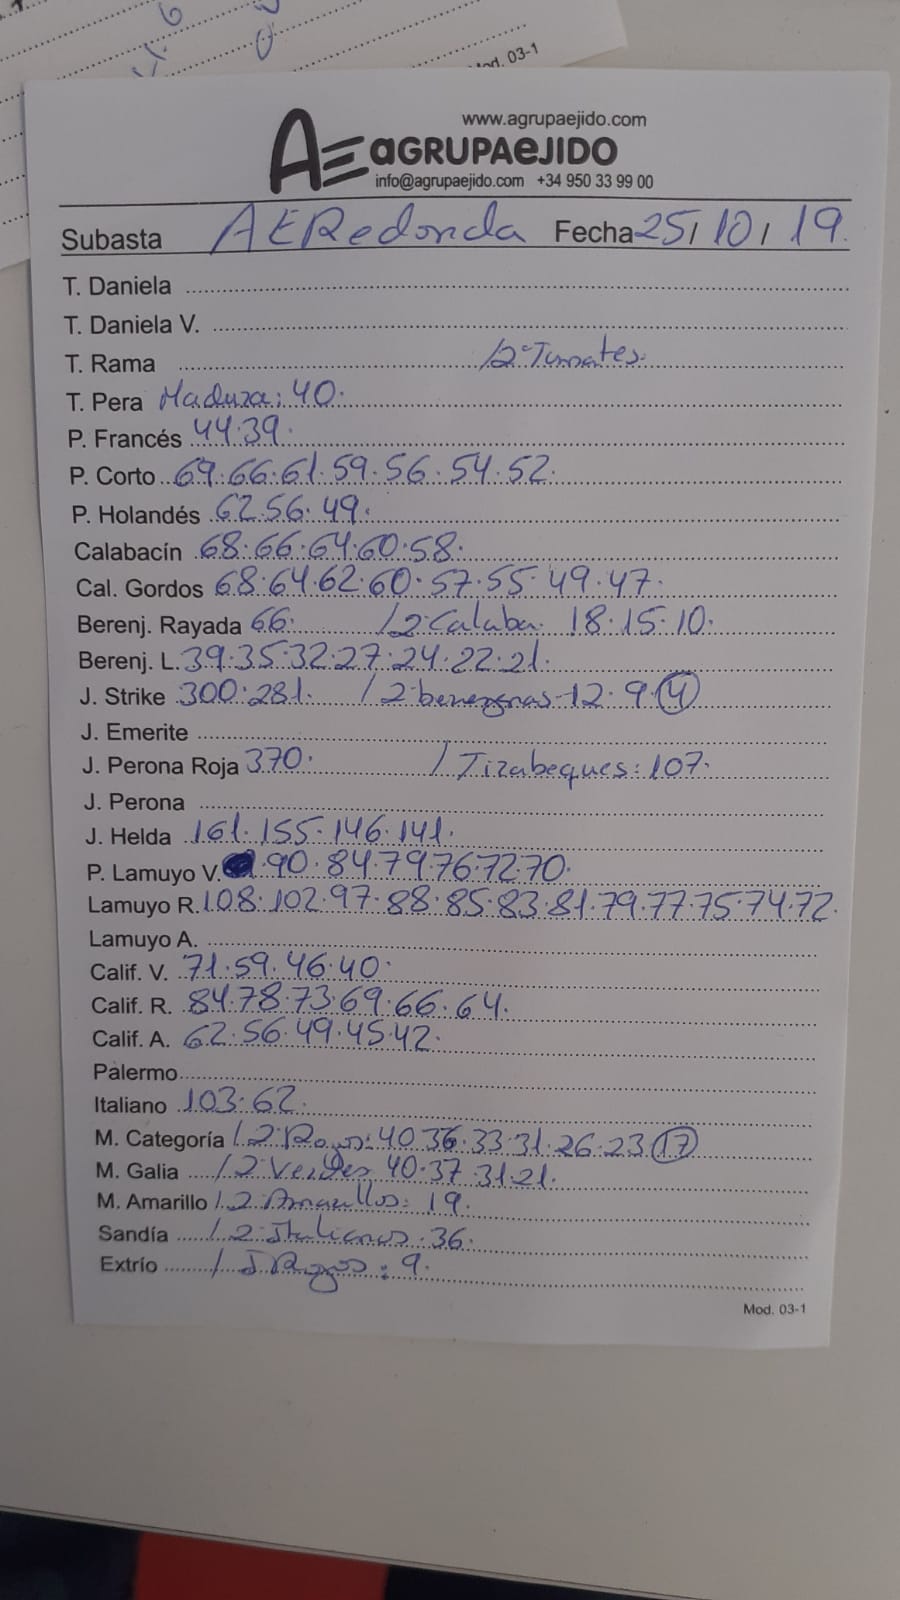 Mod. 03-1
www.agrupaejido.com
AE AGRUPAEJIDO
info@agrupaejido.com +34 950 33 99 00
Subasta AERedonda Fecha 25/10/19.
T. Daniela
T. Daniela V.
T. Rama /2ºTomates.
T. Pera Madura: 40.
P. Francés 44.39.
P. Corto 69.66.61.59.56.54.52.
P. Holandés 62.56.49.
Calabacín 68.66.64.60.58.
Cal. Gordos 68.64.62.60.57.55.49.47.
Berenj. Rayada 66. /2ºCalaba. 18.15.10.
Berenj. L. 39.35.32.27.24.22.21.
J. Strike 300.281. /2ºberengenas 12.9.(4)
J. Emerite
J. Perona Roja 370. / Tirabeques: 107.
J. Perona
J. Helda 161.155.146.141.
P. Lamuyo V. .90.84.79.76.72.70.
Lamuyo R. 108.102.97.88.85.83.81.79.77.75.74.72.
Lamuyo A.
Calif. V. 71.59.46.40.
Calif. R. 84.78.73.69.66.64.
Calif. A. 62.56.49.45.42.
Palermo
Italiano 103.62.
M. Categoría /2º Rojos: 40.36.33.31.26.23.(17)
M. Galia /2º Verdes 40.37.31.21.
M. Amarillo /2º Amarillos: 19.
Sandía /2º Italianos. 36.
Extrío / J. Rojos: 9.
Mod. 03-1